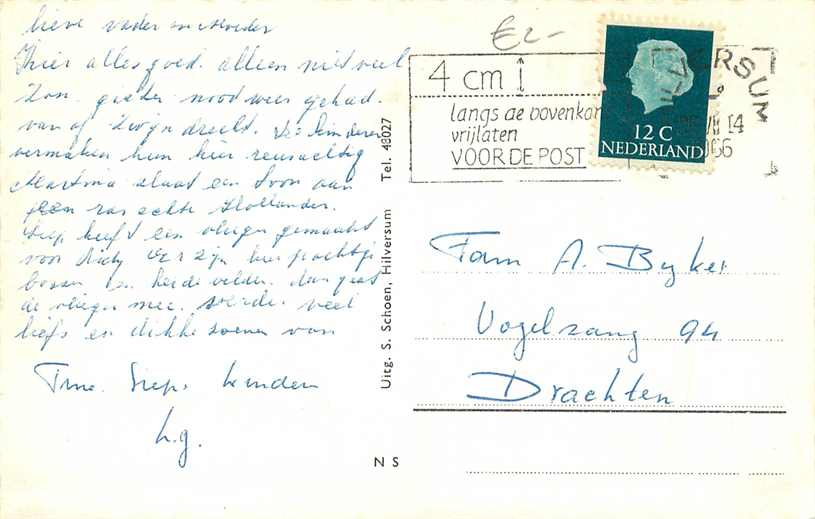 lieve vader en Moeder
hier alles goed. alleen niet veel
zon. gister noodweer gehad.
van af Zwijndrecht. De kinderen
vermaken hun hier reusachtig
Martina slaat een toon aan
geen ras echte Hollander.
Siep heeft een vlieger gemaakt
voor Ricky er zijn hier prachtige
bossen en heidevelden. dan gaat
de vlieger mee. verder veel
liefs en dikke zoenen van
Tine. Siep. kinden
h.g.
Uitg. S. Schoen, Hilversum Tel. 48027
N S
€ 2-
4 cm
langs de bovenkan
vrijlaten
VOOR DE POST
12 C
NEDERLAND
VERSUM
14
966
Fam A. Byker
Vogelzang 94
Drachten